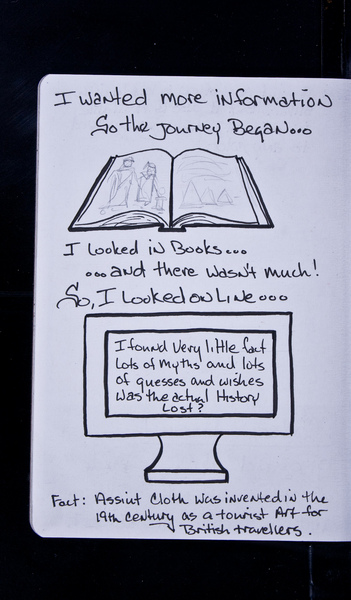 I wanted more information
So the journey Began...
I looked in Books...
...and there wasn't much!
So, I looked on Line...
I found very little fact
Lots of Myths and lots
of guesses and wishes
Was the actual History
Lost?
Fact: Assiut Cloth was invented in the
19th Century as a tourist Art for
British travellers.